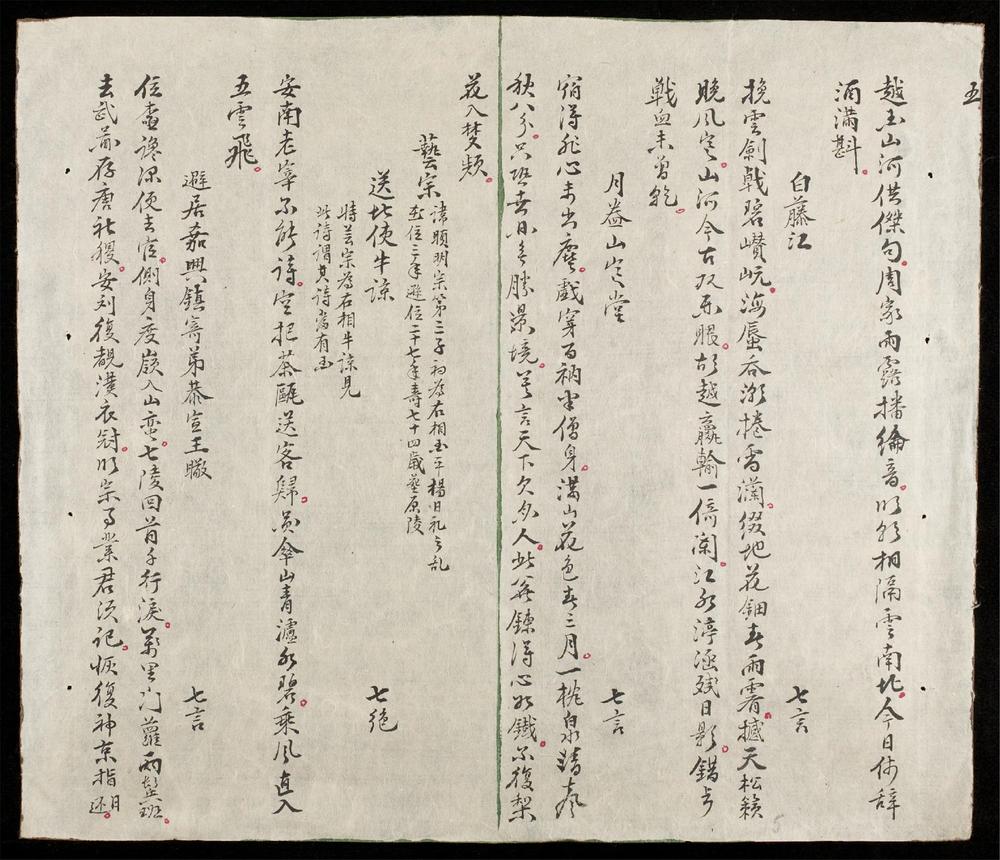 五
越玉山河供傑句周家雨露播綸音明朝相隔雲南北今日休辭
酒滿斟
白藤江 七言
挽雲劍戟碧巑岏海蜃吞潮捲雪瀾綴地花鈿春雨霽撼天松籟
晚風寒山河今古双開眼胡越贏輸一倚闌江水渟涵殘日影錯疑
戰血未曾乾
月盎山寒堂 七言
宿得禪心未出塵戲穿百衲半僧身滿山花色春三月一枕泉聲
秋八分只恐春無勝景境莫言天下欠人此翁鍊得心如鐵不復梨
花入夢頻
藝宗諱頵明宗第三子初為右相國平楊日礼之乱
在位三年遜位二十七年壽七十四歲葬原陵
送北使牛諒 七絕
時芸宗為右相牛諒見
此詩謂其詩當有国
安南老宰不能詩空把茶甌送客歸員傘山青瀘水碧乘風直入
五雲飛
避居嘉興鎮寄弟恭宣王暾 七言
位極讒深便去官側身度嶺入山蛮七陵回首千行淚萬里捫蘿兩鬢班
去武啚存唐社稷安刘復覩漢衣冠明宗事業君須記恢復神京指日还